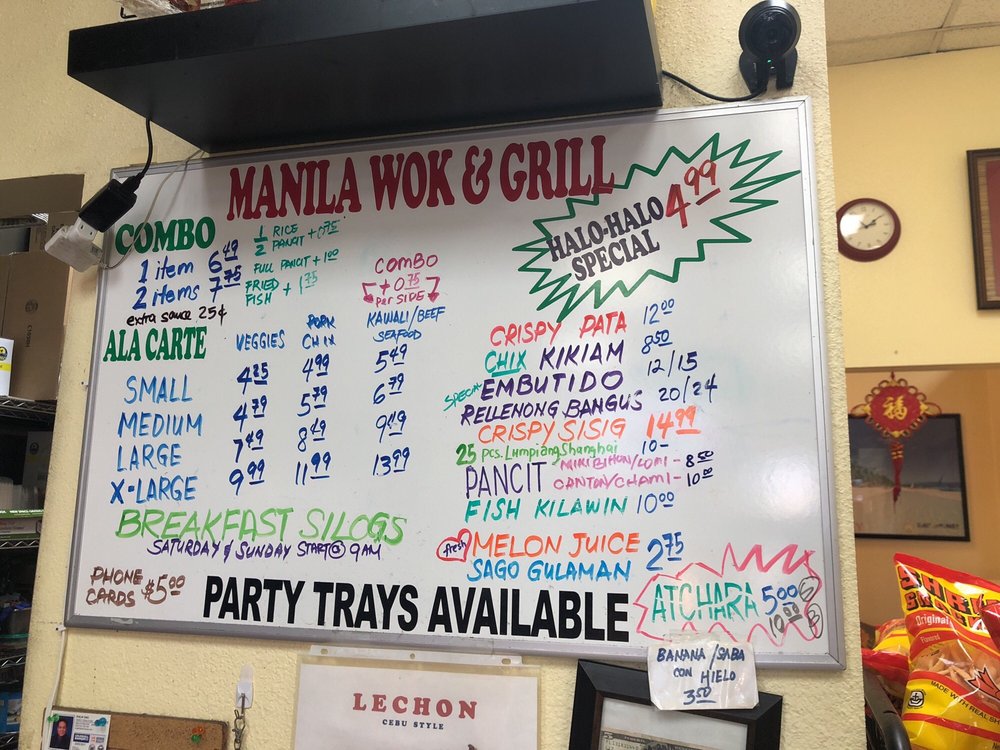 MANILA WOK & GRILL
COMBO
1 item 6.49
2 items 7.75
extra sauce 25¢
1/2 RICE
PANCIT + 0.75
FULL PANCIT + 1.00
FRIED
FISH + 1.75
COMBO
+ 0.75
per SIDE
HALO-HALO 4.99
SPECIAL
ALA CARTE
VEGGIES PORK CHIX KAWALI/BEEF SEAFOOD
SMALL 4.25 4.99 5.49
MEDIUM 4.79 5.79 6.79
LARGE 7.49 8.49 9.49
X-LARGE 9.99 11.99 13.99
BREAKFAST SILOGS
SATURDAY & SUNDAY START @ 9AM
PHONE
CARDS $5.00
CRISPY PATA 12.00
CHIX KIKIAM 8.50
SPECIAL EMBUTIDO 12/15
RELLENONG BANGUS 20/24
CRISPY SISIG 14.99
25 pcs. Lumpiang Shanghai 10-
PANCIT MIKI BIHON/LOMI - 8.50
CANTON/CHAMI - 10.00
FISH KILAWIN 10.00
fresh MELON JUICE 2.75
SAGO GULAMAN
ATCHARA 5.00
10.00
PARTY TRAYS AVAILABLE
BANANA/SABA
CON HIELO
3.50
LECHON
CEBU STYLE
福
Original
Flavored
MADE WITH REAL